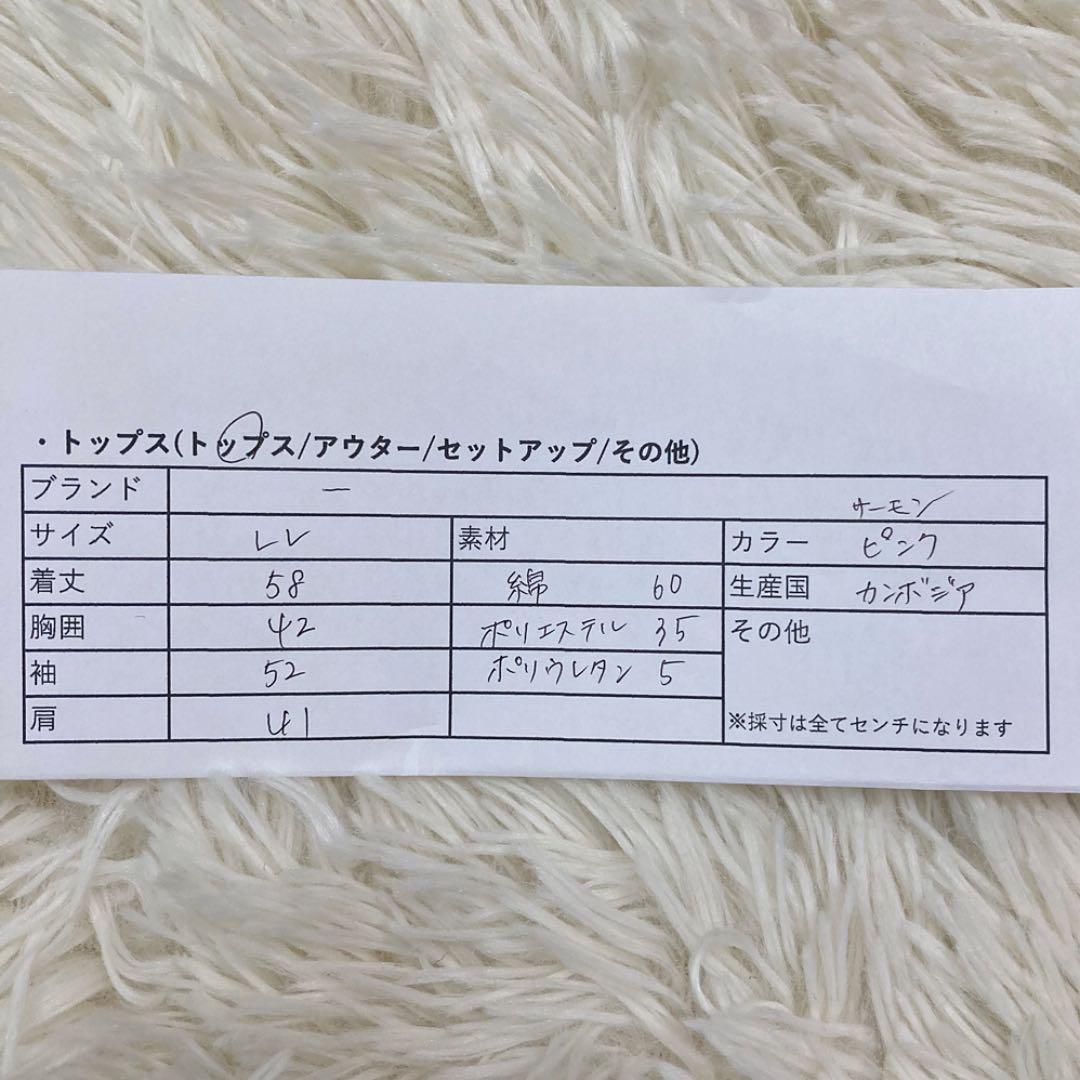 ・トップス(トップス/アウター/セットアップ/その他)
ブランド ー
サーモン
サイズ LL 素材 カラー ピンク
着丈 58 綿 60 生産国 カンボジア
胸囲 42 ポリエステル 35 その他
袖 52 ポリウレタン 5
肩 41 ※採寸は全てセンチになります